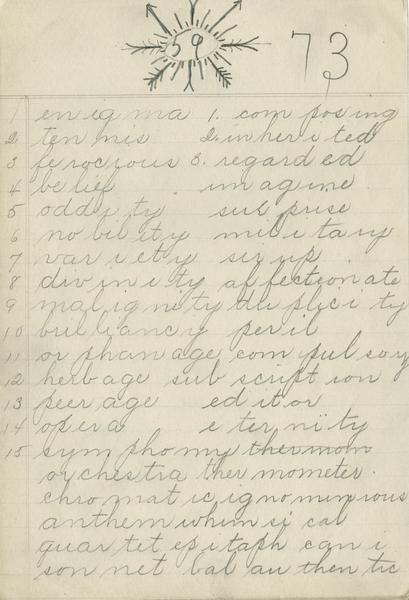 59 73
1 enigma 1. composing
2 tennis 2. inherited
3 ferocious 3. regarded
4 belief imagine
5 oddity
6 nobility military
7 variety sirup
8 divinity affectionate
9 malignity duplicity
10 brilliancy peril
11 orphanage compulsoy
12 herbage subscription
13 peerage editor
14 opera eternity
15 symphomy thermom
orchestra thermometer.
chromatic ignominious
anthem whimsical
quartet epitaph
sonnet authentic